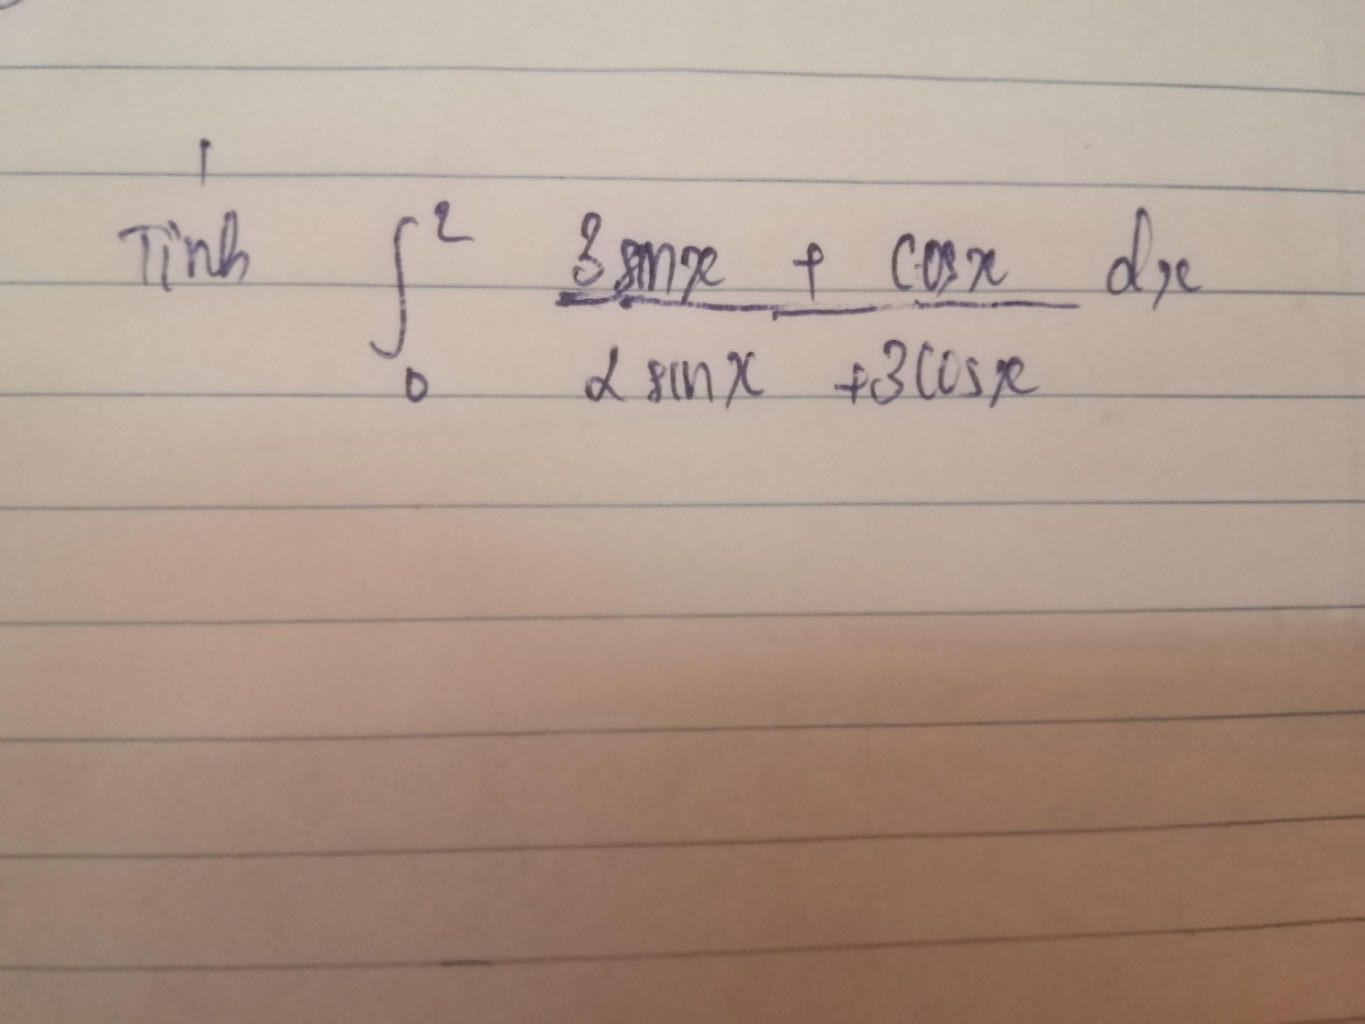 Tính ∫₀² (3 sinx + cosx) / (2 sinx + 3 cosx) dx